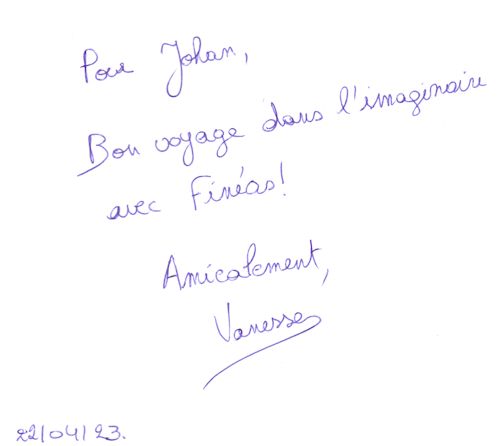 Pour Johan,
Bon voyage dans l'imaginaire
avec Finéas!
Amicalement,
Vanessa
22/04/23.